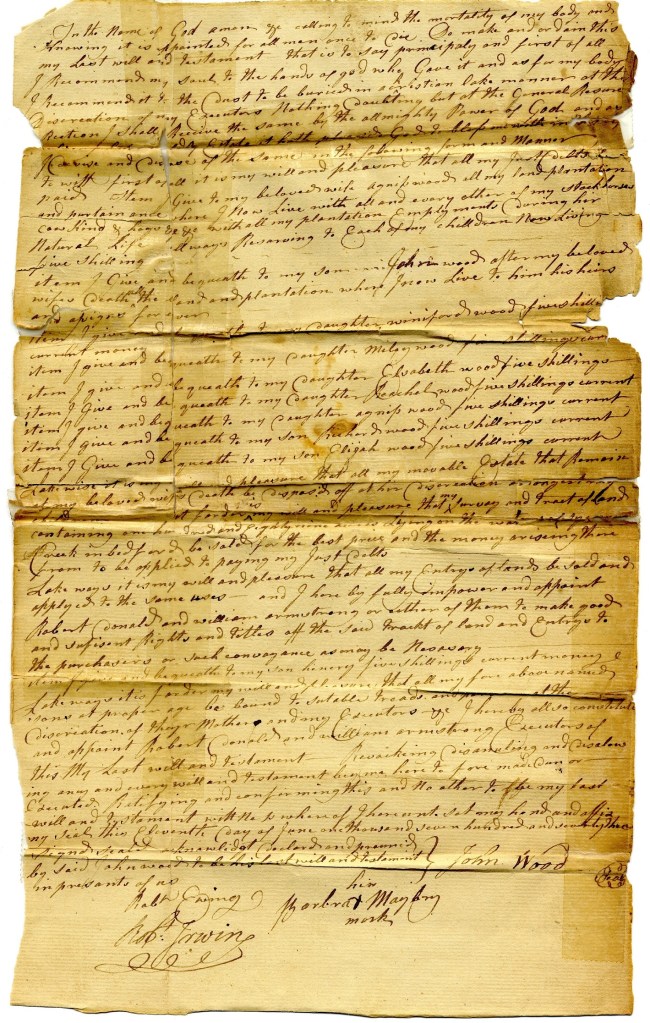 In the Name of God amen &c calling to mind the mortality of my body and
Knowing it is appointed for all men once to Die Do make and ordain this
my Last will and testament that is to say principaly and first of all
I Recommend my Soul to the hands of god who Gave it and as for my body
I Recommend it to the Dust to be buried in a Cristian like manner at the
Discreation of my Executors Nothing Doubting but at the General Resure
rection I shall Receive the same by the allmighty Power of God and as
Estate it hath pleased God to bless me with
I Give and Devise of the same in the following form and Manner
to witt first of all it is my will and pleasure that all my Just Debts be
paid Item I Give to my beloved wife agness wood all my land plantation
and purtainance where I Now Live with all and every other of my stock horses
cows kind & hogs &c with all my plantation Employments During her
Natural Life allways Reserving to Each of my children Now Living
five shilling
item I Give and bequeath to my son John wood after my beloved
wifes Death the land and plantation where I now Live to him his heirs
and asigns for ever
item I give and bequeath to my Daughter winiford wood five shillin
current money
item I give and bequeath to my Daughter Melsey wood five shillings
item I give and bequeath to my Daughter Elsabeth wood five shillings
item I Give and bequeath to my Daughter Reachel wood five shillings current
item I give and bequeath to my Daughter agness wood five shillings current
item I give and bequeath to my son Richard wood five shillings current
item I Give and bequeath to my son Elijah wood five shillings current
Like wise it is my will and pleasure that all my movable Estate that Remains
at my beloved wifes Death be Disposed off at her Discreation
it is my will and pleasure that my survay and tract of land
containing one hundred and Eighty nine acres Lying on the
Creek in bedford be sold for the best price and the money ariseing there
from to be applied to paying my Just Debts
Like ways it is my will and pleasure that all my Entrys of lands be sold and
applyed to the same uses and I here by fully impower and appoint
Robert Donald and william armstrong or either of them to make good
and sufisent Rights and tittles off the said trackt of land and Entrys to
the purchasers or such convayance as may be Nesasary
item I give and bequeath to my son henery five shillings current money &
Like ways it is farder my will and pleasure that all my fore above named
sons at proper age be bound to sutable treads at the
Discreation of theyr Mother and my Executors &c I hereby all so constitute
and appoint Robert Donald and william armstrong Executors of
this My Last will and testament Revoicking disanuling and disalow
ing any and every will and testament by me here to fore mad Don or
Executed Retifying and confirming this and No other to be my last
will and testament wittness where of I have hereunt set my hand and affix
my seal this Eleventh Day of June one thousand seven hundred and seventy three
signed sealed acknowlidgt Declard and pronuncd
by said John wood to be his last will and testament } John Wood Seal
in presents of us
Robt Ewing
his
Barbra X Maybry
mark
Robt. Irwin